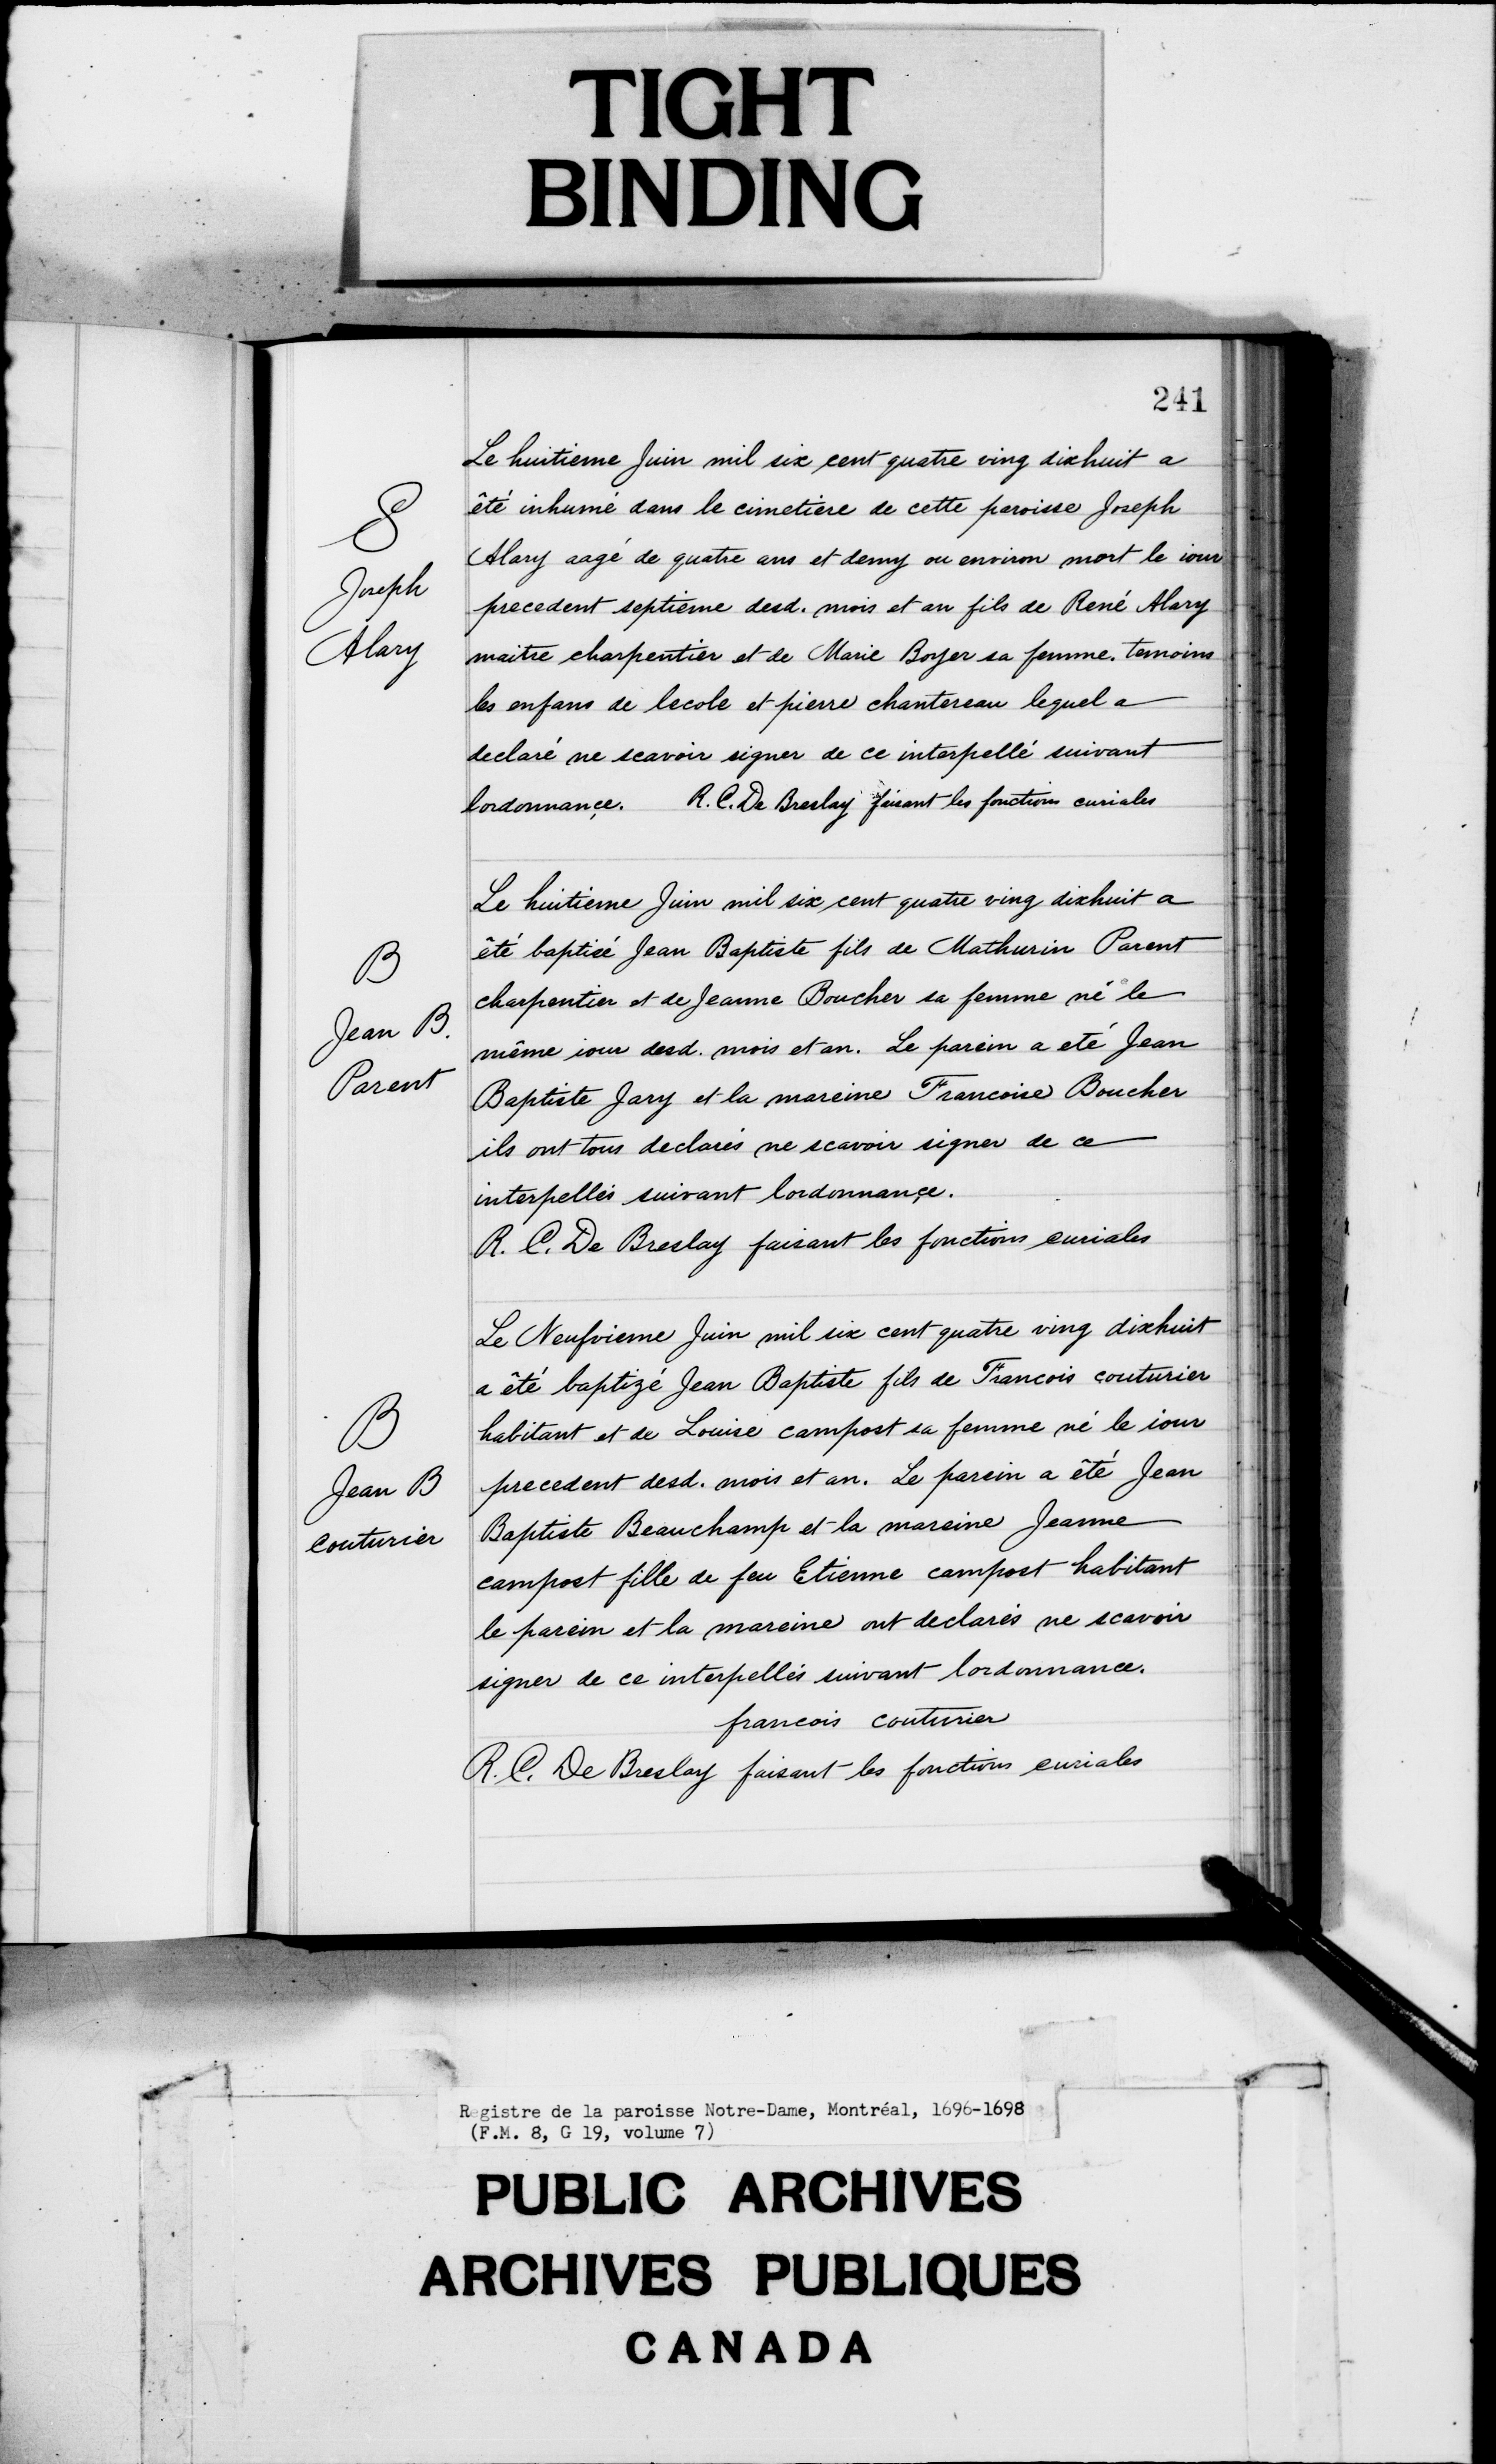 TIGHT
BINDING
241
S
Joseph
Alary
Le huitieme Juin mil six cent quatre ving dixhuit a
êté inhumé dans le cimetiere de cette paroisse Joseph
Alary aagé de quatre ans et demy ou environ mort le iour
precedent septieme desd. mois et an fils de René Alary
maitre charpentier et de Marie Boyer sa femme. temoins
les enfans de lecole et pierre chantereau lequel a
declaré ne scavoir signer de ce interpellé suivant
lordonnançe. R. C. De Breslay faisant les fonctions curiales
B
Jean B.
Parent
Le huitieme Juin mil six cent quatre ving dixhuit a
êté baptisé Jean Baptiste fils de Mathurin Parent
charpentier et de Jeanne Boucher sa femme né le
même iour desd. mois et an. Le parein a eté Jean
Baptiste Jary et la mareine Francoise Boucher
ils ont tous declarés ne scavoir signer de ce
interpellés suivant lordonnançe.
R. C. De Breslay faisant les fonctions curiales
B
Jean B
couturier
Le Neufvieme Juin mil six cent quatre ving dixhuit
a êté baptizé Jean Baptiste fils de Francois couturier
habitant et de Louise campost sa femme né le iour
precedent desd. mois et an. Le parein a êté Jean
Baptiste Beauchamp et la mareine Jeanne
campost fille de feu Etienne campost habitant
le parein et la mareine ont declarés ne scavoir
signer de ce interpellés suivant lordonnance.
francois couturier
R. C. De Breslay faisant les fonctions curiales
Registre de la paroisse Notre-Dame, Montréal, 1696-1698
(F.M. 8, G 19, volume 7)
PUBLIC ARCHIVES
ARCHIVES PUBLIQUES
CANADA